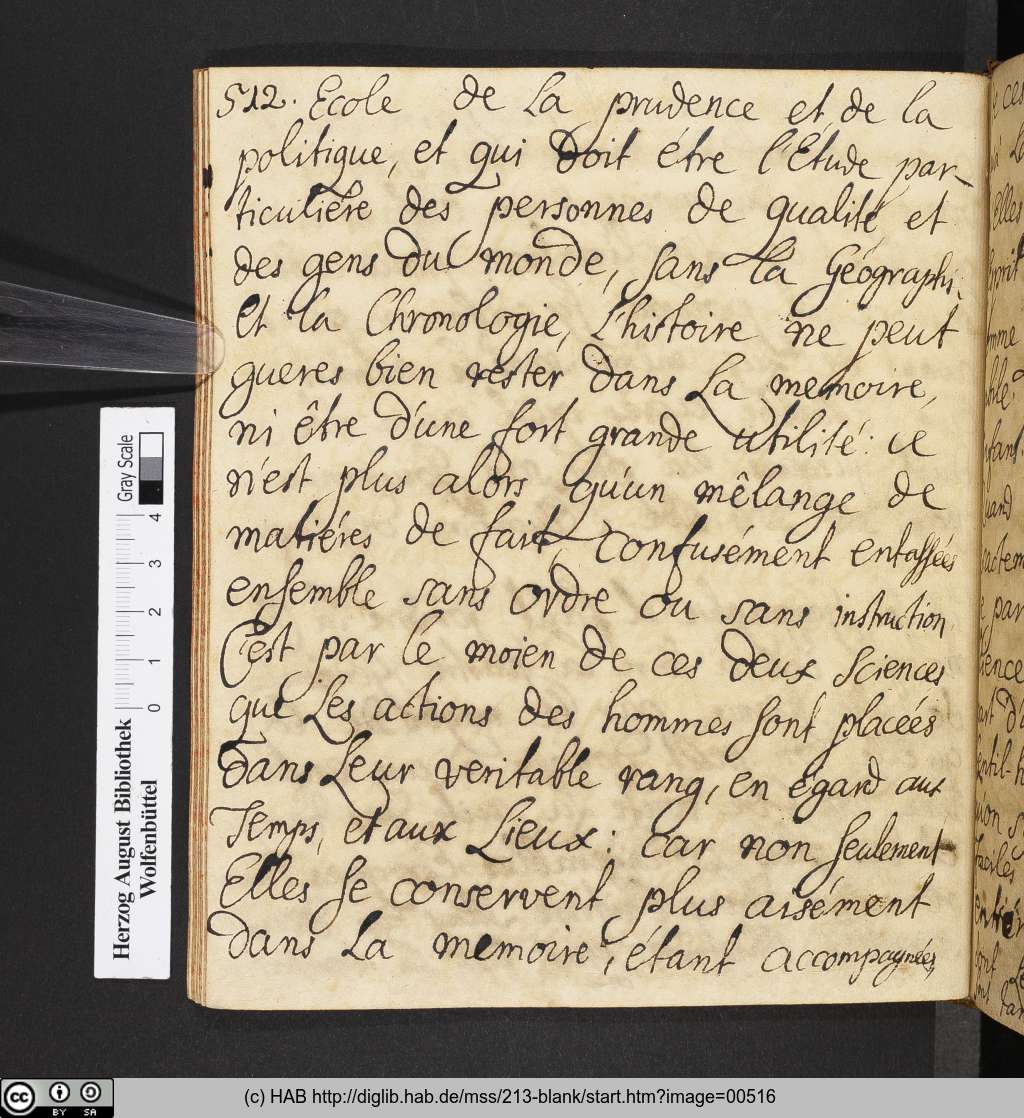 512. Ecole de la prudence et de la
politique, et qui doit étre l'Etude par-
ticuliére des personnes de qualité et
des gens du monde, sans la Géographi.
et la Chronologie, L'histoire ne peut
gueres bien rester dans La memoire,
ni être d'une fort grande utilité: ce
n'est plus alors qu'un mêlange de
matiéres de fait, confusément entassées
ensemble sans ordre ou sans instruction
C'est par le moien de ces deux sciences
que Les actions des hommes sont placeés
dans Leur veritable rang, en égard aux
Temps, et aux Lieux: car non seulement
Elles se conservent plus aisément
dans La memoire, étant accompagnées
Herzog August Bibliothek
Wolfenbüttel
0 1 2 3 4
Gray Scale
BY SA
(c) HAB http://diglib.hab.de/mss/213-blank/start.htm?image=00516